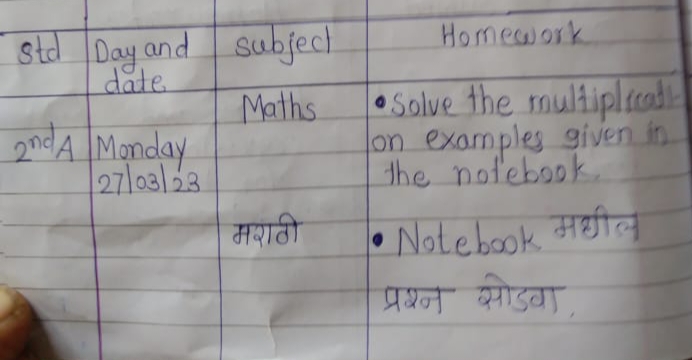 Std Day and date subject Homework
Maths • Solve the multiplicati-
2nd A Monday on examples given in
27/03/23 the notebook.
मराठी • Notebook मधील
प्रश्न सोडवा.